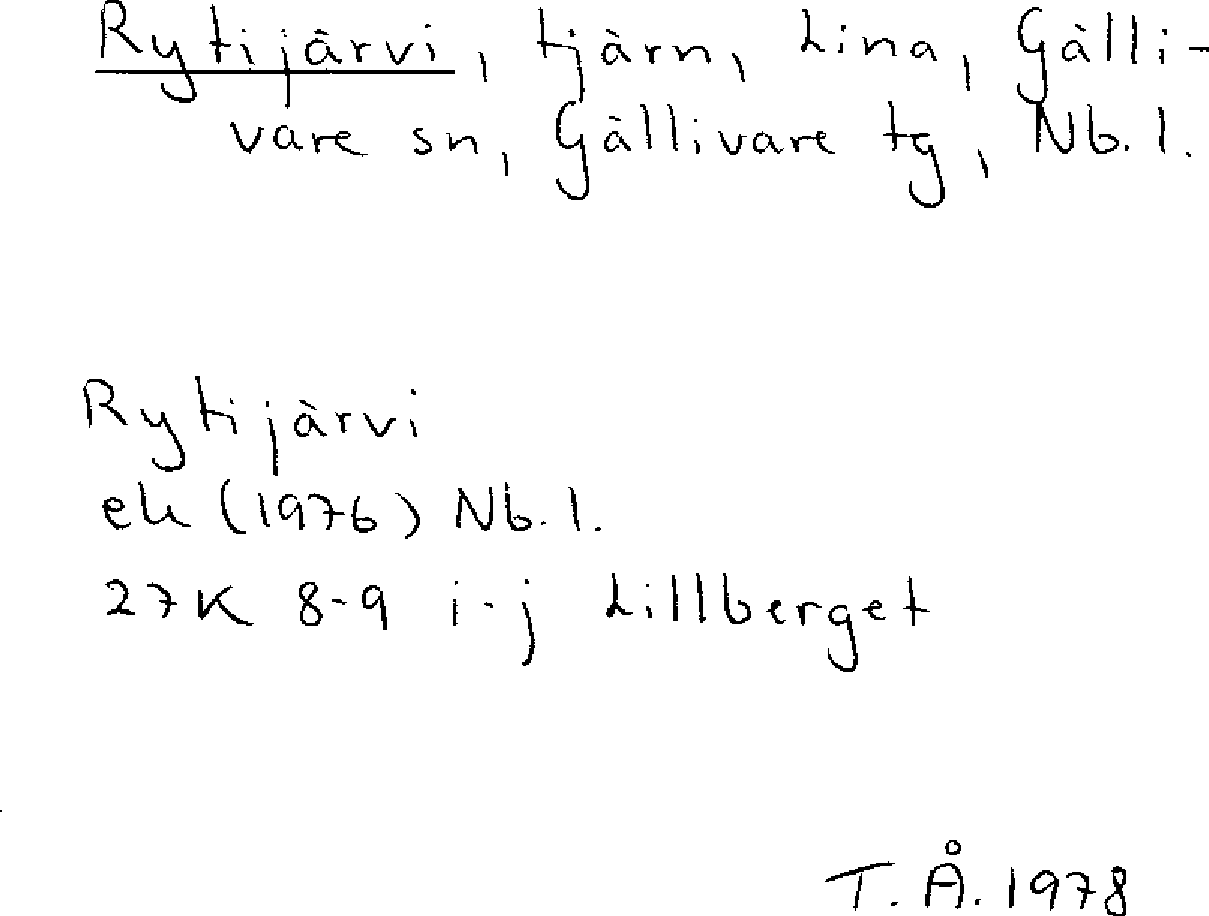 Rytijärvi, tjärn, Lina, Gälli-
vare sn, Gällivare tg, Nb. l.
Rytijärvi
ek (1976) Nb. l.
27K 8-9 i-j Lillberget
T. Å. 1978